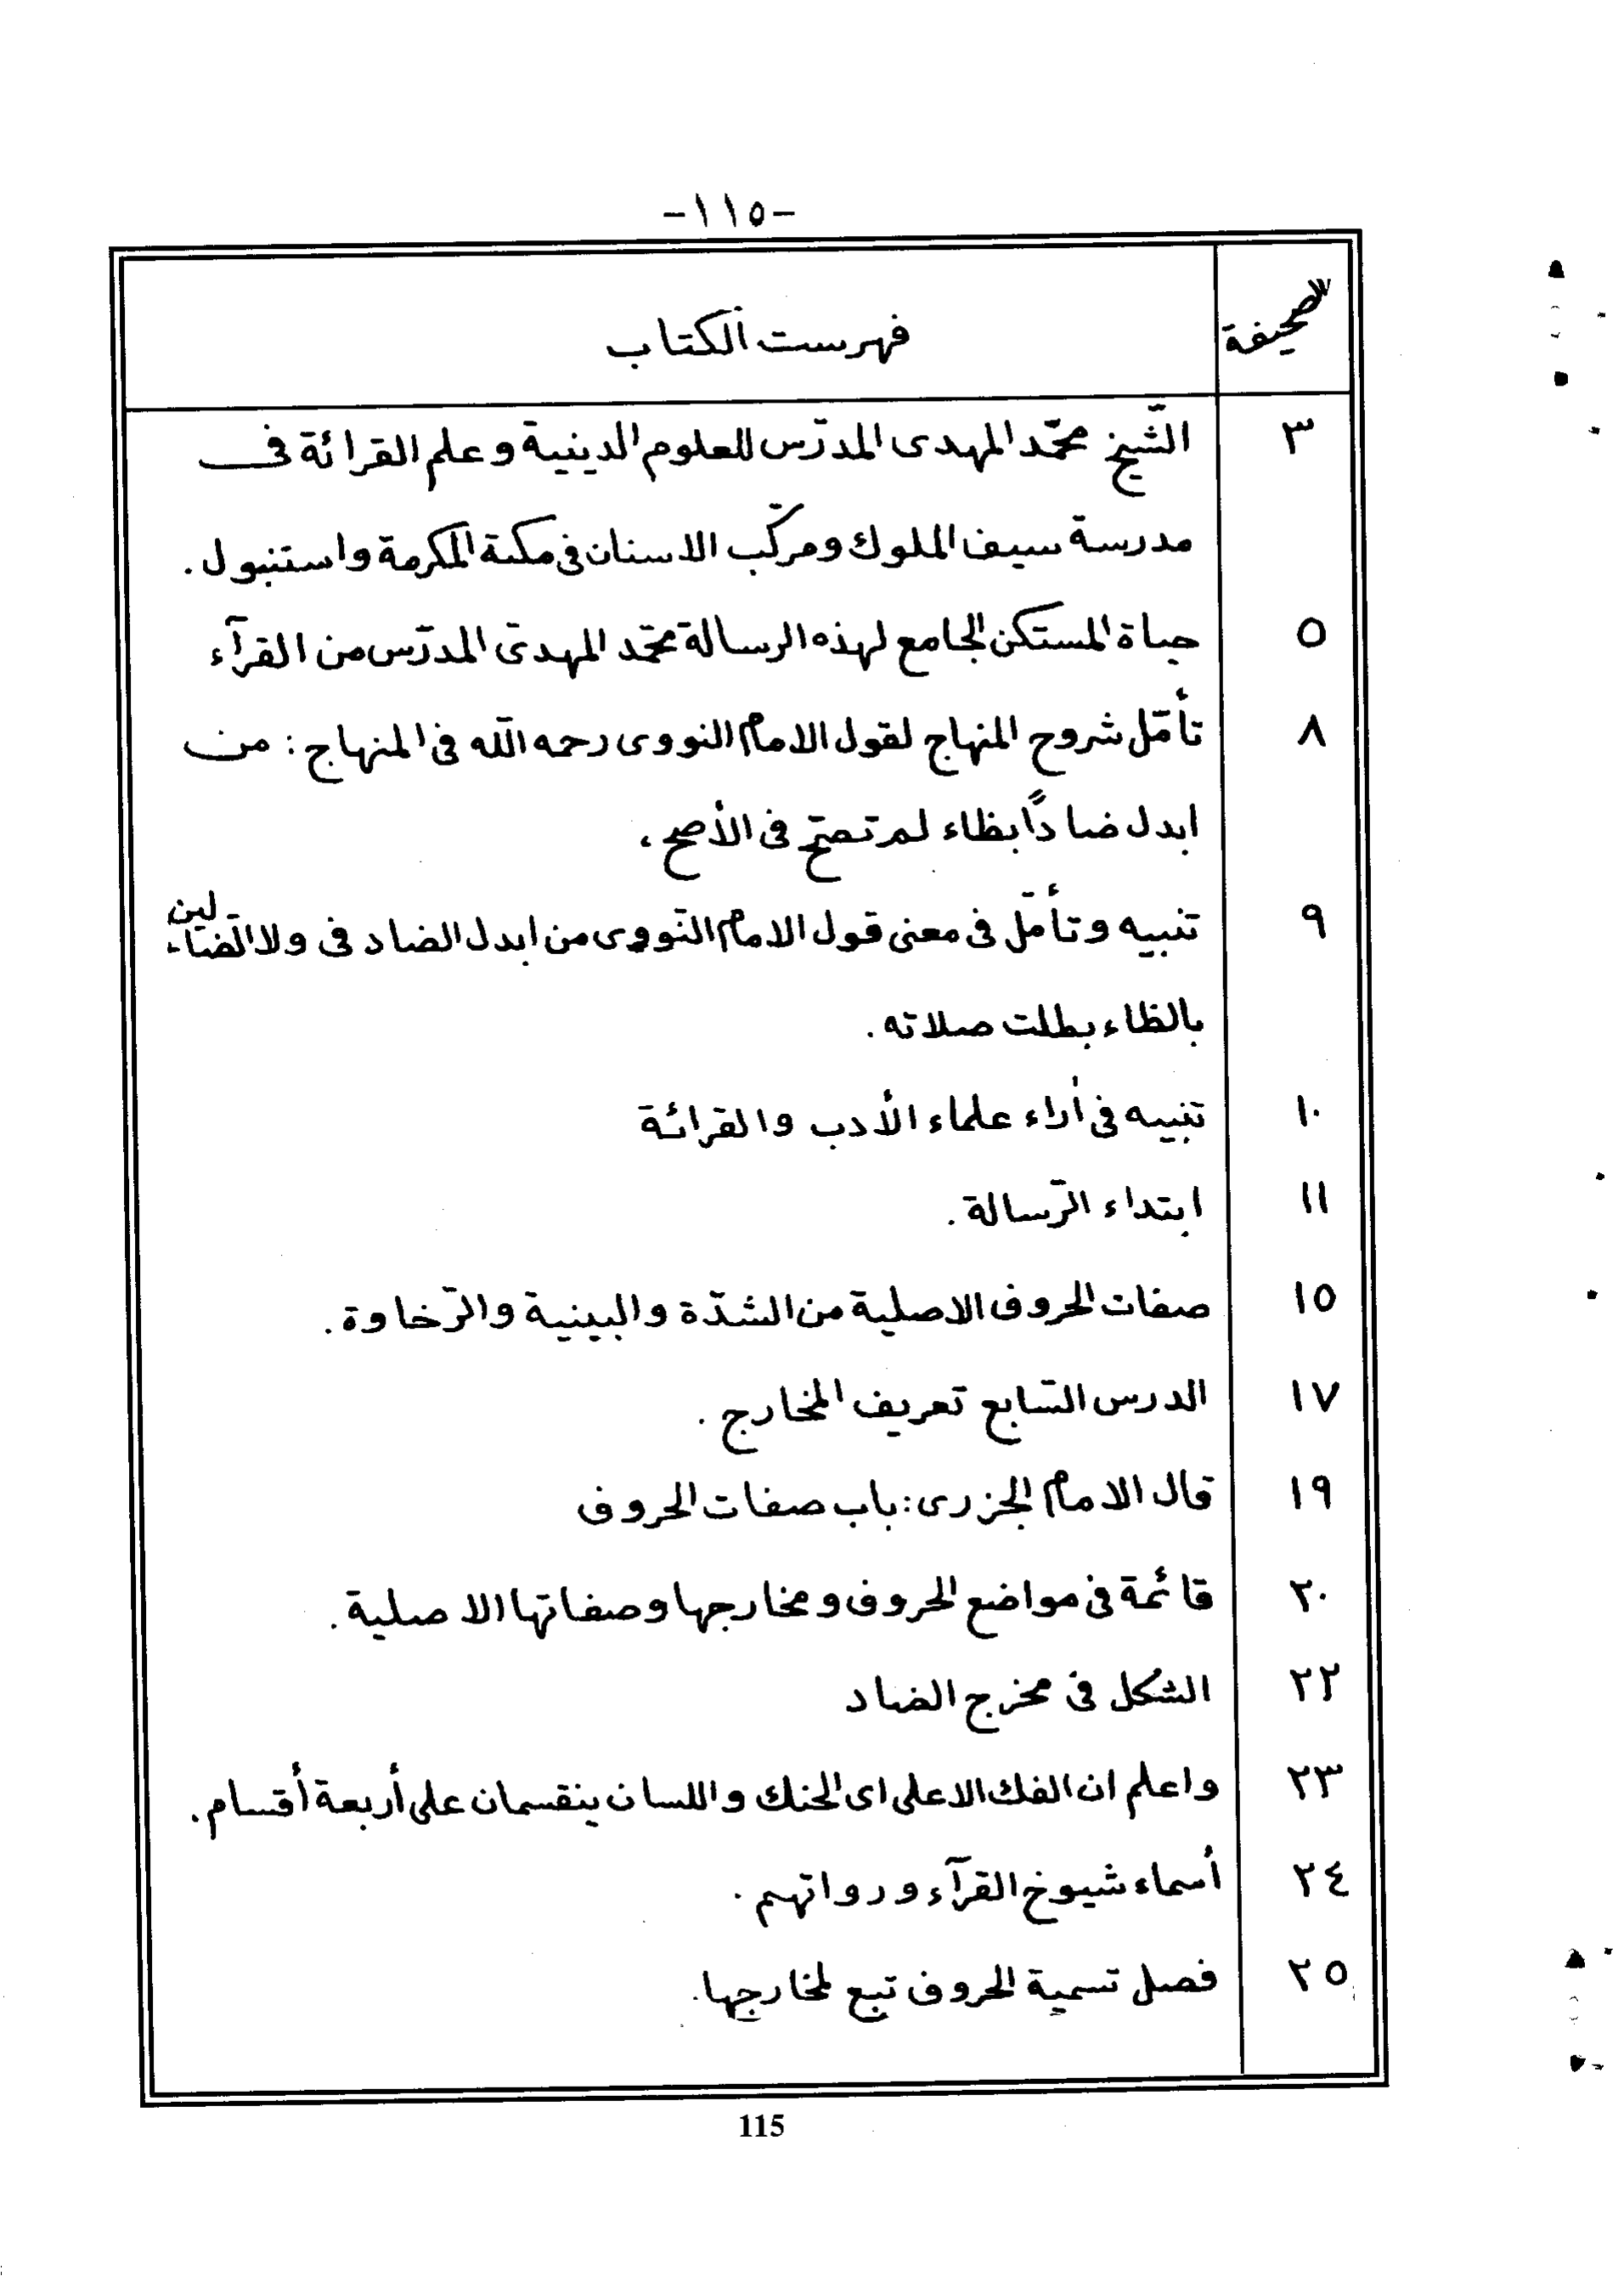 -١١٥-
الصحيفة فهرست الكتاب
٣ الشّيخ محمّد المهدى المدرّس للعلوم الدينية وعلم القرائة فى
مدرسة سيف الملوك ومركّب الاسنان فى مكة المكرمة واستنبول.
٥ حياة المستكن الجامع لهذه الرسالة محمّد المهدىّ المدرّس من القرآء
٨ تأمّل شروح المنهاج لقول الامام النووى رحمه الله فى المنهاج: من
ابدل ضاداً بظاء لم تصحّ فى الأصح،
٩ تنبيه وتأمّل فى معنى قول الامام النّووى من ابدل الضاد فى ولا الضّالين
بالظاء بطلت صلاته.
١٠ تنبيه فى أراء علماء الأدب والقرائة
١١ ابتداء الرّسالة.
١٥ صفات الحروف الاصلية من الشدّة والبينية والرّخاوة.
١٧ الدرس السّابع تعريف المخارج.
١٩ قال الامام الجزرى: باب صفات الحروف
٢٠ قائمة فى مواضع الحروف ومخارجها وصفاتها الاصلية.
٢٢ الشكل فى مخرج الضاد
٢٣ واعلم ان الفك الاعلى اى الحنك واللسان ينقسمان على أربعة أقسام.
٢٤ أسماء شيوخ القرآء ورواتهم.
٢٥ فصل تسمية الحروف تبع لمخارجها.
115